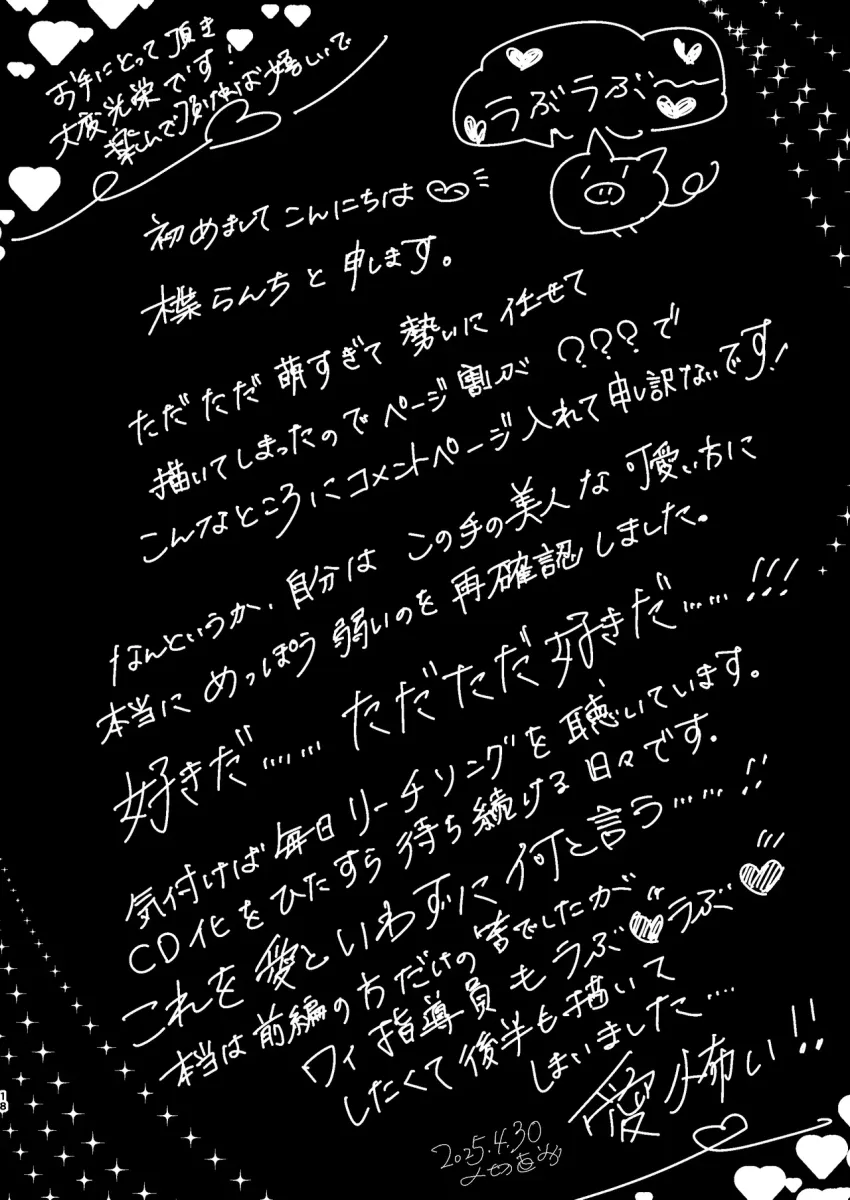 お手にとって頂き
大変光栄です!
楽しんで頂ければ嬉しいで
ラぶラぶ〜
初めましてこんにちは
楪らんちと申します。
ただただ萌すぎて勢いに任せて
描いてしまったのでページ割が???で
こんなところにコメントページ入れて申し訳ないです!
なんというか、自分はこの手の美人な可愛い方に
本当にめっぽう弱いのを再確認しました。
好きだ……ただただ好きだ……!!!
気付けば毎日リーチソングを聴いています。
CD化をひたすら待ち続ける日々です。
これを愛といわずに何と言う……!!
本当は前編の方だけの筈でしたが
ワイ指導員もラぶラぶ
したくて後半も描いて
しまいました…..
愛怖い!!
2025.4.30
18